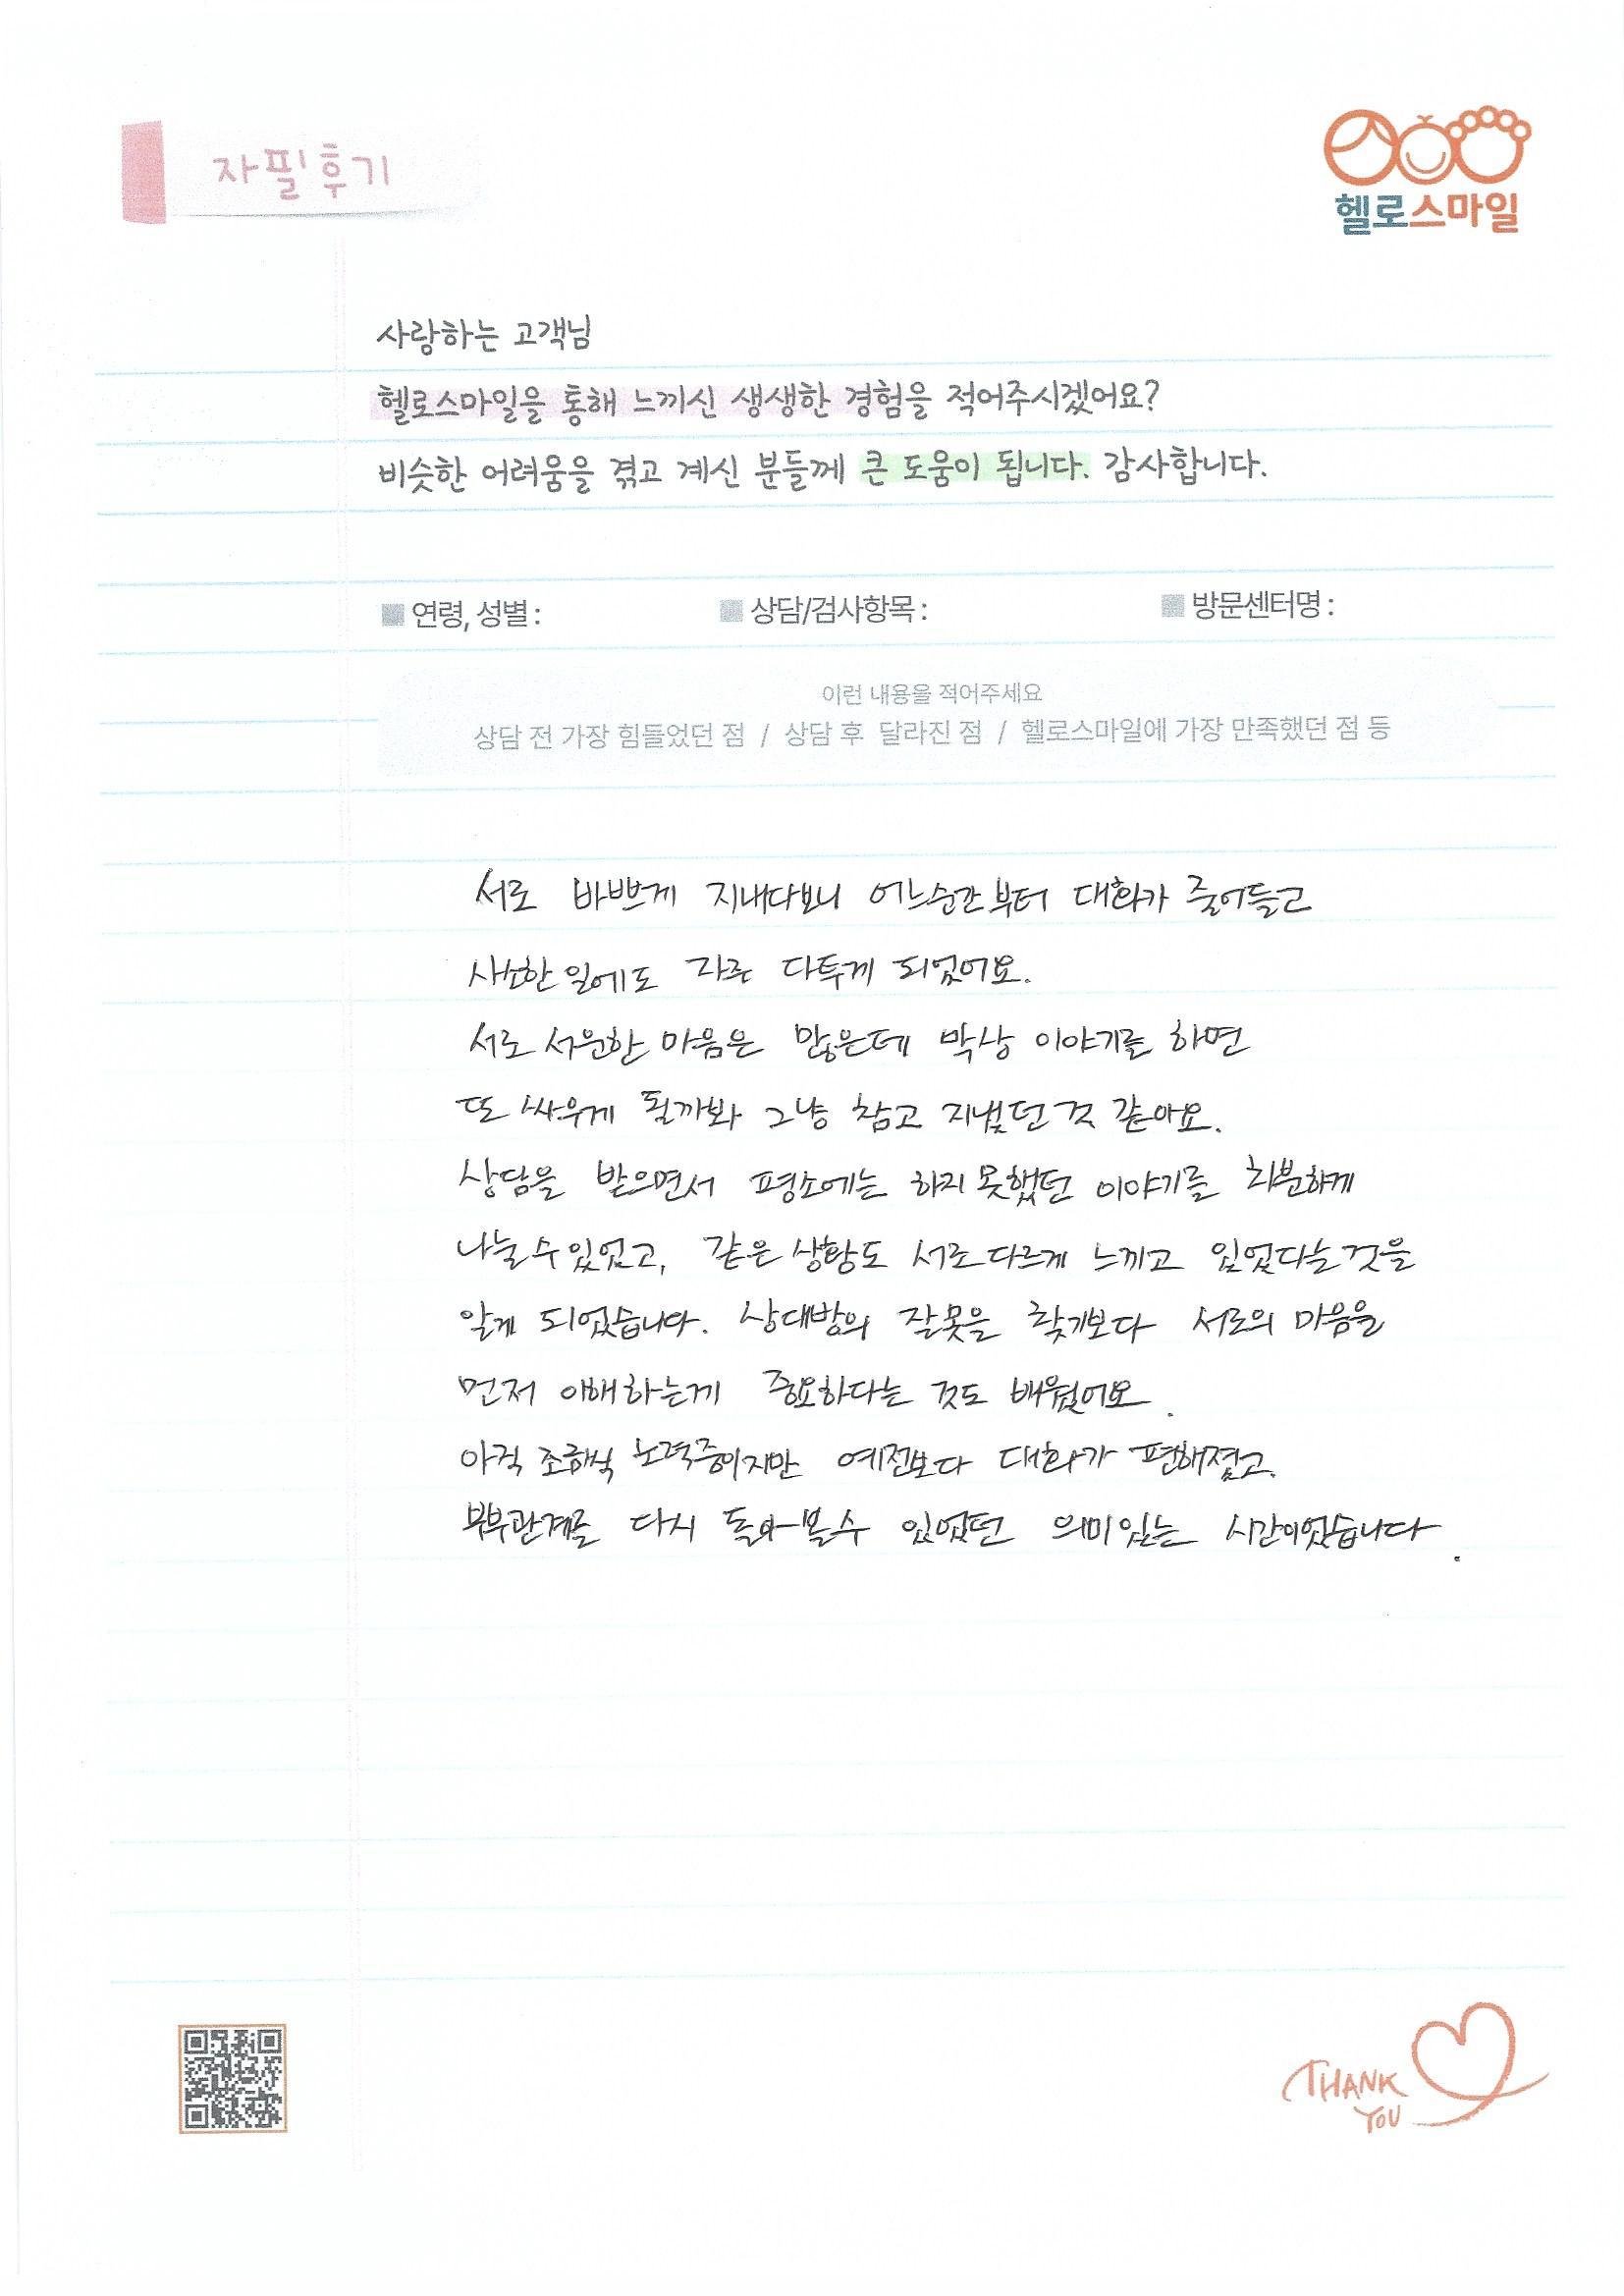 자필후기
헬로스마일
사랑하는 고객님
헬로스마일을 통해 느끼신 생생한 경험을 적어주시겠어요?
비슷한 어려움을 겪고 계신 분들께 큰 도움이 됩니다. 감사합니다.
■ 연령, 성별 : ■ 상담/검사항목 : ■ 방문센터명 :
이런 내용을 적어주세요
상담 전 가장 힘들었던 점 / 상담 후 달라진 점 / 헬로스마일에 가장 만족했던 점 등
서로 바쁘게 지내다보니 어느순간부터 대화가 줄어들고
사소한 일에도 자주 다투게 되었어요.
서로 서운한 마음은 많은데 막상 이야기를 하면
또 싸우게 될까봐 그냥 참고 지냈던 것 같아요.
상담을 받으면서 평소에는 하지 못했던 이야기를 차분하게
나눌수 있었고, 같은 상황도 서로 다르게 느끼고 있었다는 것을
알게 되었습니다. 상대방의 잘못을 찾기보다 서로의 마음을
먼저 이해하는게 중요하다는 것도 배웠어요.
아직 조금씩 노력중이지만 예전보다 대화가 편해졌고.
부부관계를 다시 돌아볼수 있었던 의미있는 시간이었습니다.
THANK
YOU